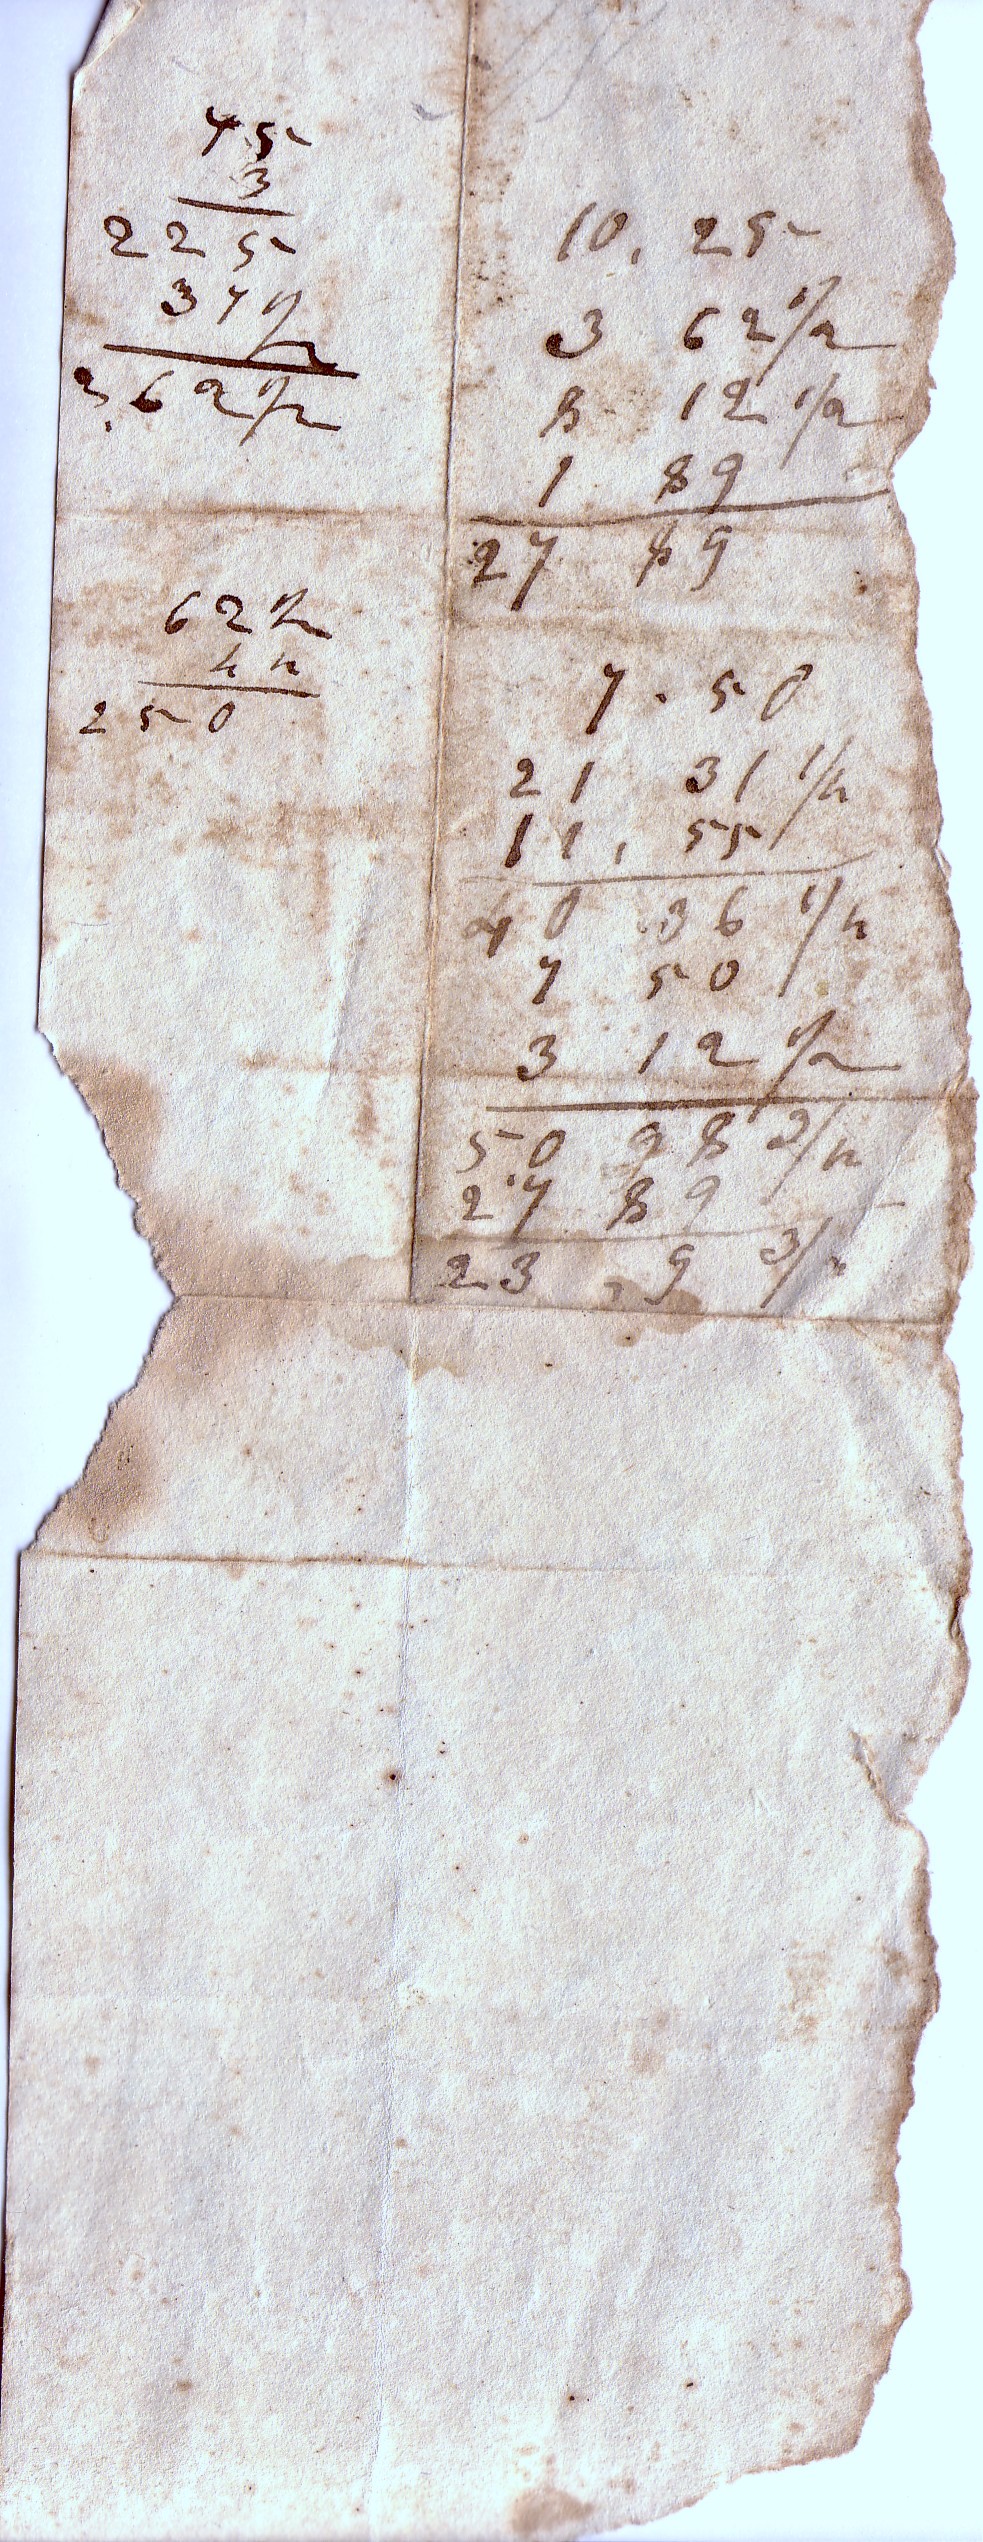 75
3
225
37 1/2
2.62 1/2
62 1/2
4 4
250
10. 25
3 62 1/2
8 12 1/2
1 89
27 89
7. 50
21 31 1/4
11, 55
40 36 1/4
7 50
3 12 1/2
50 98 3/4
27 89
23 , 9 3/4